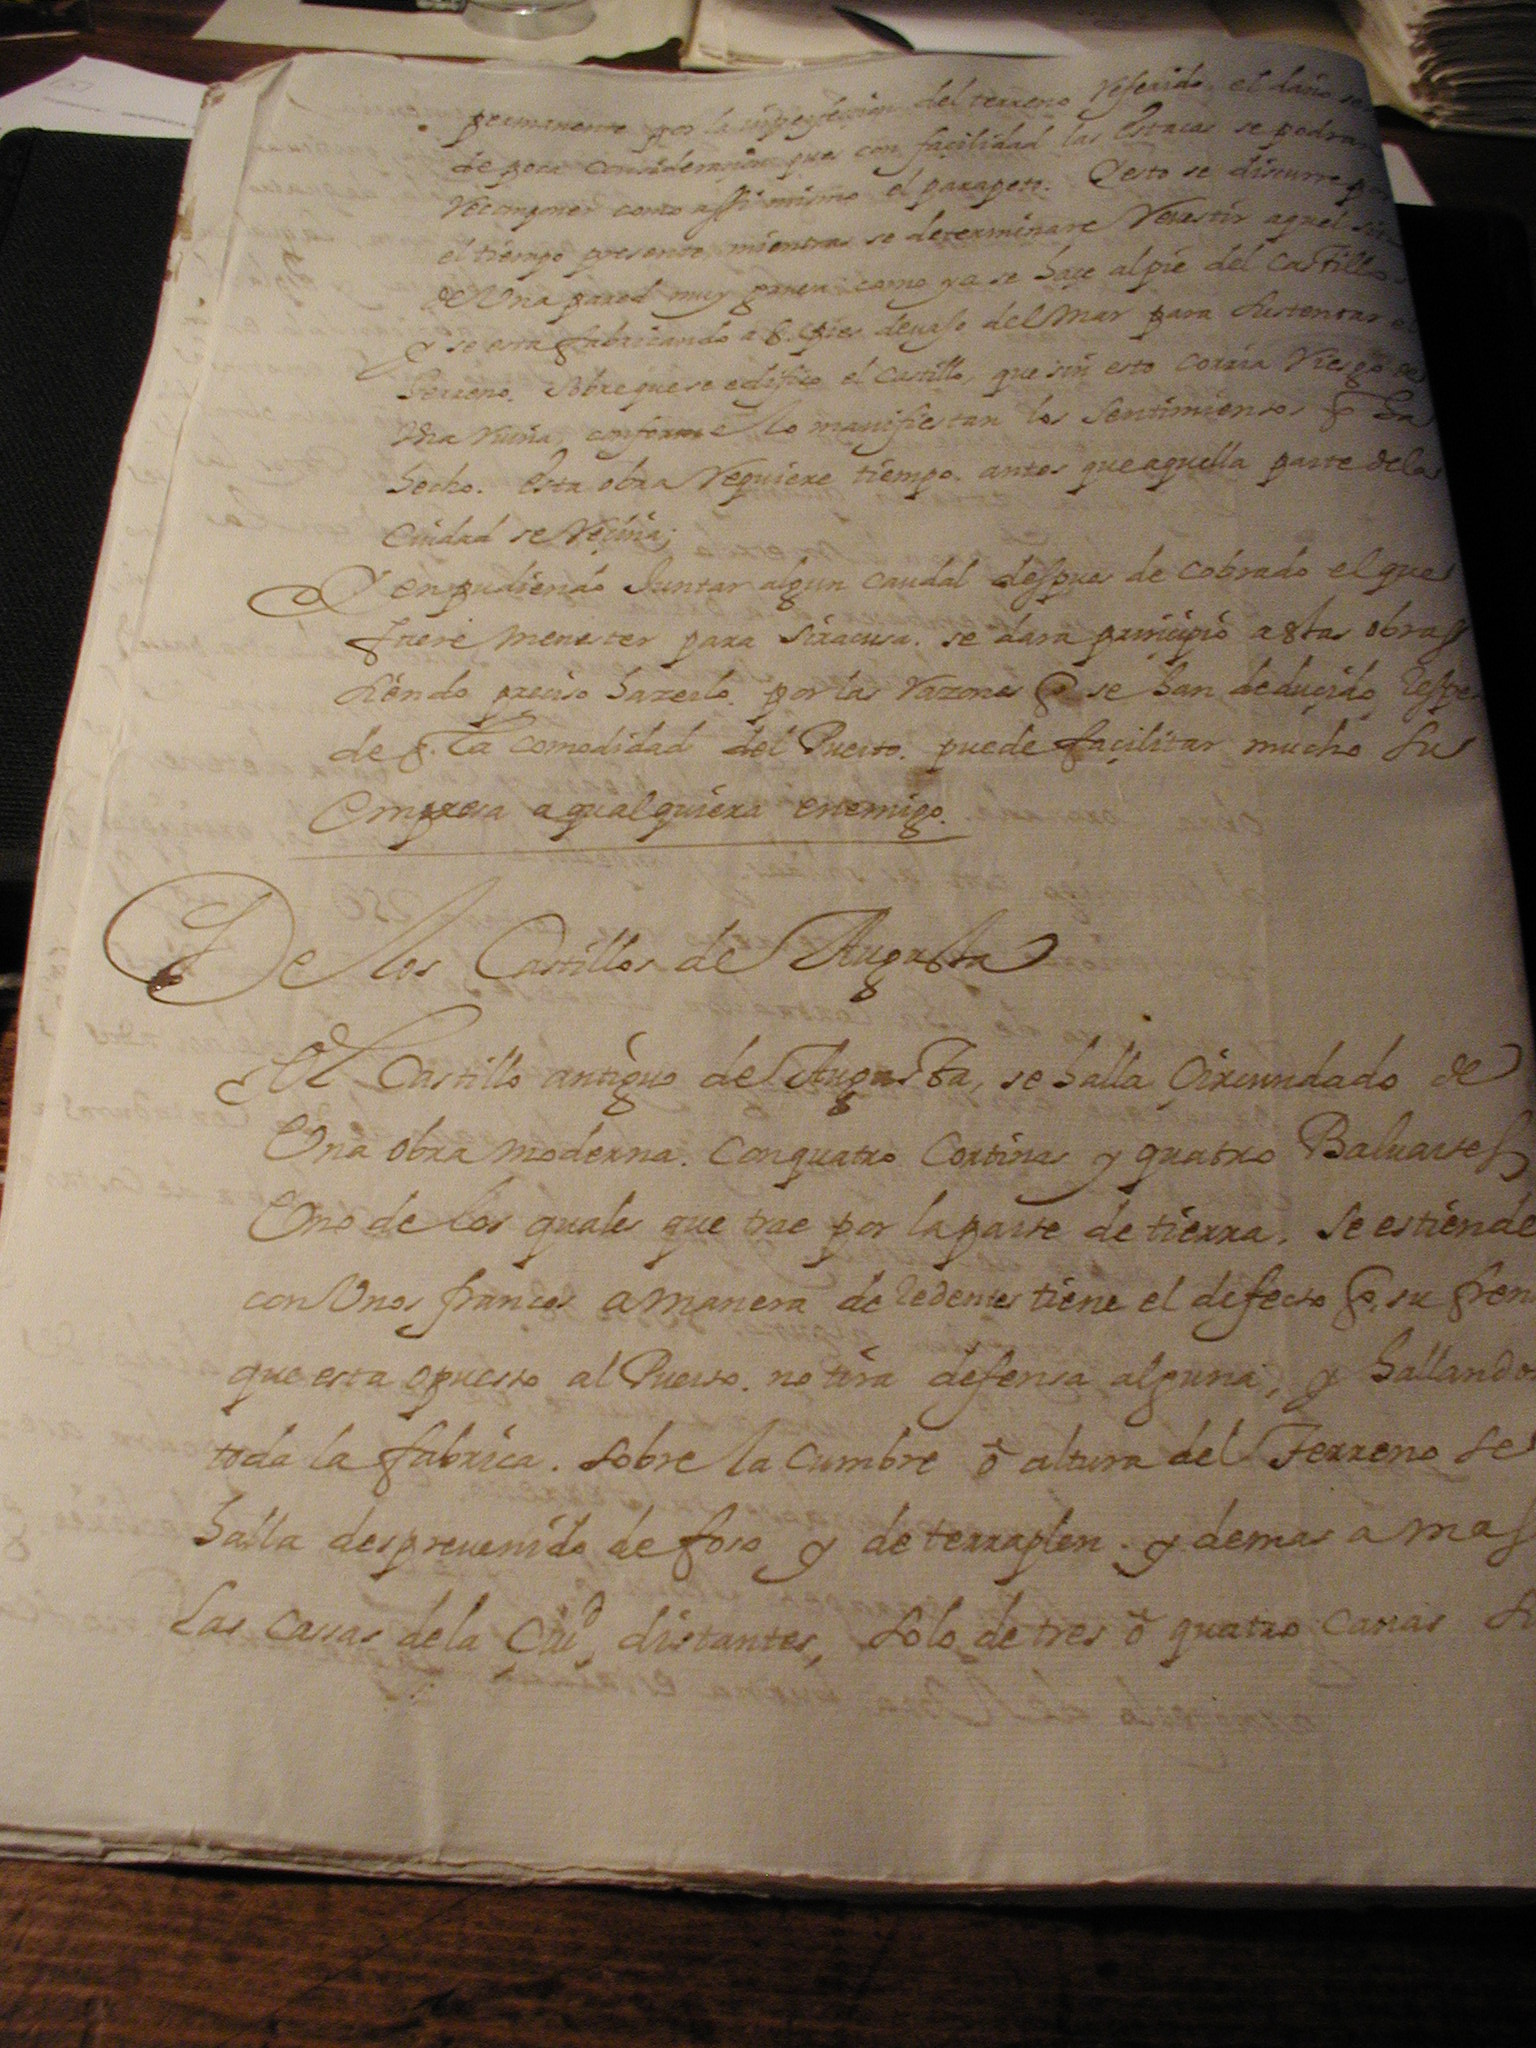 permanente por la imperfeccion del terreno referido, el daño se
de poca consideracion pues con facilidad las estacas se podran
recomponer como assi mismo el parapeto. Y esto se discurre por
el tiempo presente, mientras se determinare revestir aquel
de Una pared muy gruesa como ya se haçe al pie del castillo
y se esta fabricando a 8. pies devajo del Mar para sustentar el
terreno. sobre que se edifico el castillo, que sin esto corria riesgo de
Una ruina, conforme lo manifiestan los sentimientos q ha
hecho. esta obra requiere tiempo. antes que aquella parte de la
Ciudad se
Y en pudiendo Juntar algun caudal despues de cobrado el que
fuere menester para Siracusa. se dara principio a estas obras
siendo preciso hazerlo. por las razones q se han deduçido, respe
de q. la comodidad del Puerto. puede façilitar mucho su
Empresa a qualquiera enemigo.
De los Castillos de Augusta
El Castillo antiguo de Augusta, se halla Çircundado de
Una obra moderna. con quatro Cortinas y quatro Baluartes
Uno de los quales que trae por la parte de tierra. se estiende
con Unos franços a manera de redientes tiene el defecto q. su fren
que esta opuesto al Puerto. no tira defensa alguna, y hallando
toda la fabrica. sobre la cumbre ò altura del Terreno se
halla desprevenido de foso y de terraplen. y demas a mas
las casas de la Ciud, distantes, solo de tres ò quatro canas si